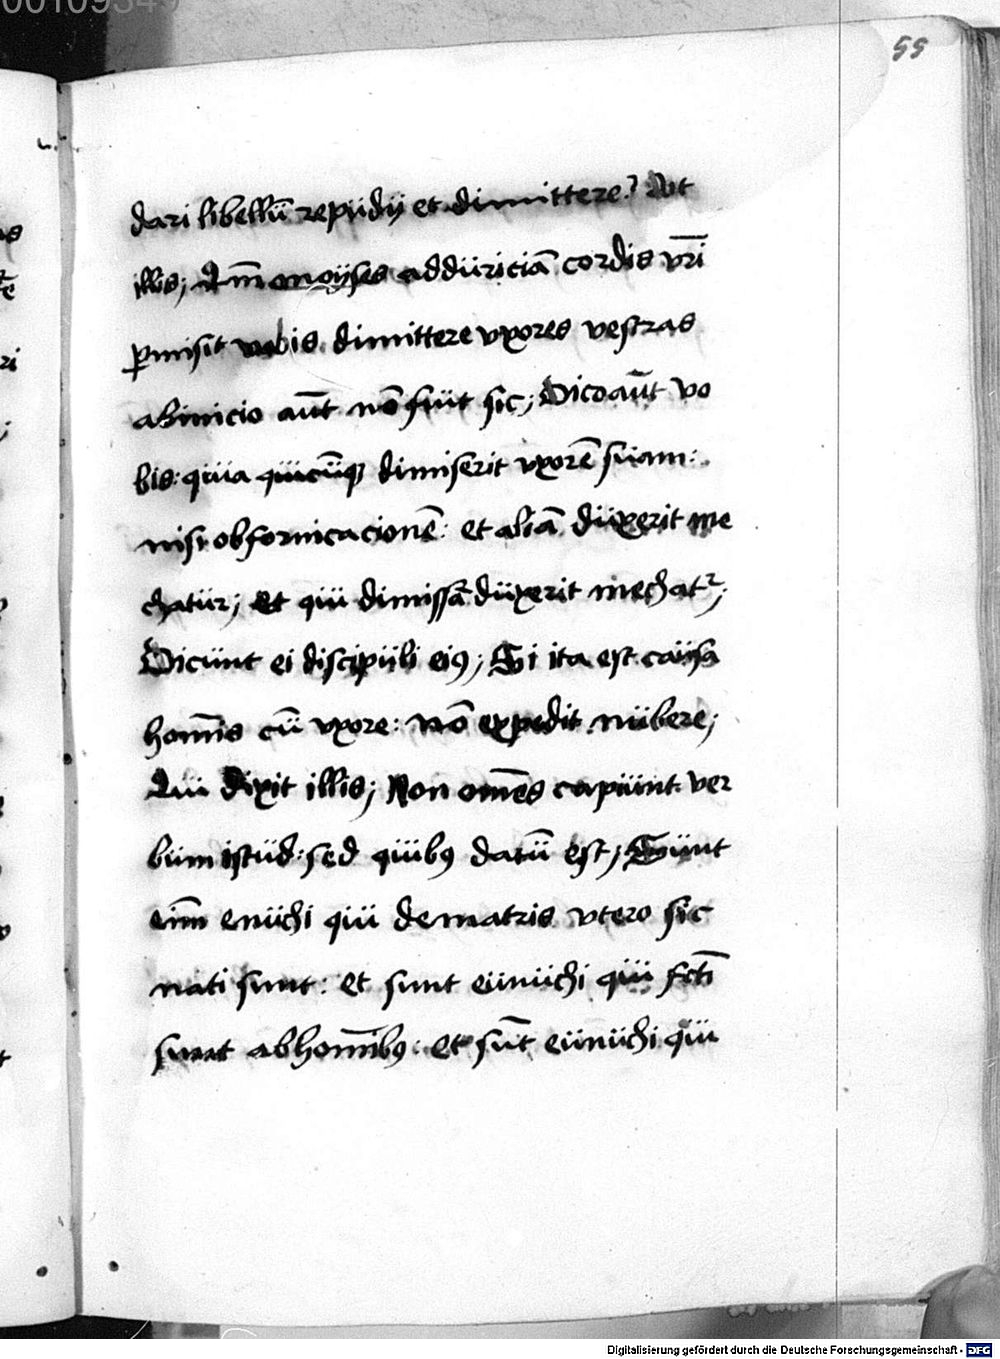 00109349
55
dari libellū repudij et dimittere? Ait
illis; Qm̄ moyses ad duriciā cordis vr̄i
ꝑmisit vobis dimittere vxores vestras
ab inicio aūt nō fuit sic; Dico aūt vo
bis: quia quicūqꝫ dimiserit vxorē suam:
nisi ob fornicacionē: et aliā duxerit me
chatur; Et qui dimissā duxerit mechatᷣ;
Dicunt ei discipuli eiꝯ; Si ita est causa
homīs cū vxore: nō expedit nubere;
Qui dixit illis; Non om̄es capiunt ver
bum istud: sed quibꝯ datū est; Sunt
eim̄ enuchi qui de matris vtero sic
nati sunt: et sunt eunuchi qui fcī
sunt ab homībꝯ: et sūt eunuchi qui
Digitalisierung gefördert durch die Deutsche Forschungsgemeinschaft - DFG